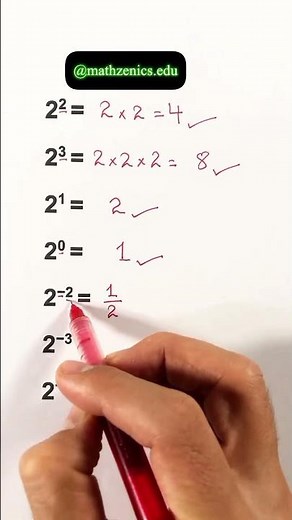 @mathzenics.edu
2² = 2 × 2 = 4 ✓
2³ = 2 × 2 × 2 = 8 ✓
2¹ = 2 ✓
2⁰ = 1 ✓
2⁻² = 1/2
2⁻³
2